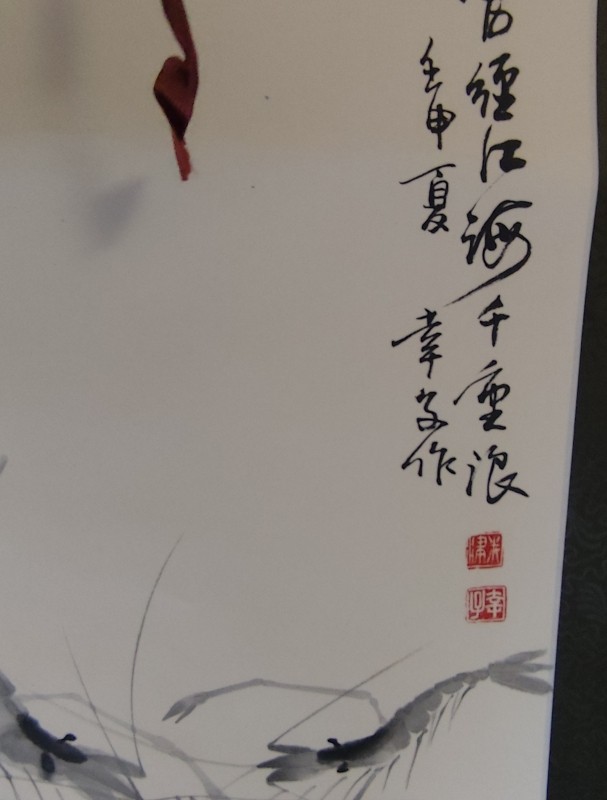 經江海千重浪
壬申夏 幸作